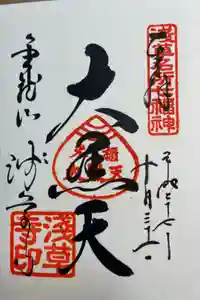 浅草名所七福神
奉拝
十月三十一日
大黒天
金龍山
浅草寺
浅草寺印